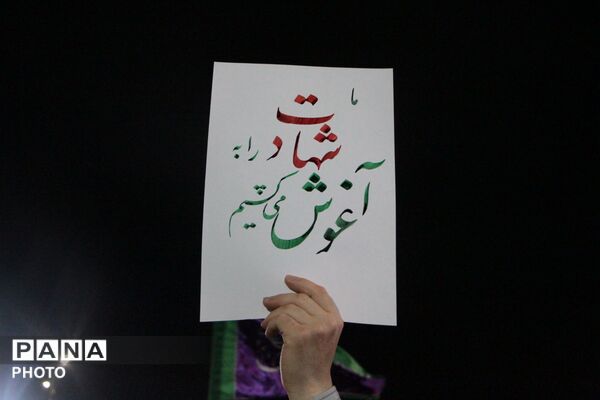 ما
شهادت
را به
آغوش
می‌کشیم
PANA
PHOTO